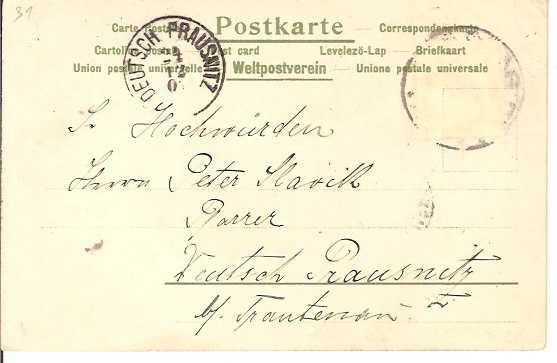 31
Carte Postale — Postkarte — Correspondenzkarte
Cartolina postale — Post card — Levelező-Lap — Briefkaart
Union postale universelle Weltpostverein — Unione postale universale
DEUTSCH PRAUSNITZ
Sr. Hochwürden
Herrn Peter Slavik
Pfarrer
Deutsch Prausnitz
b/. Trautenau.